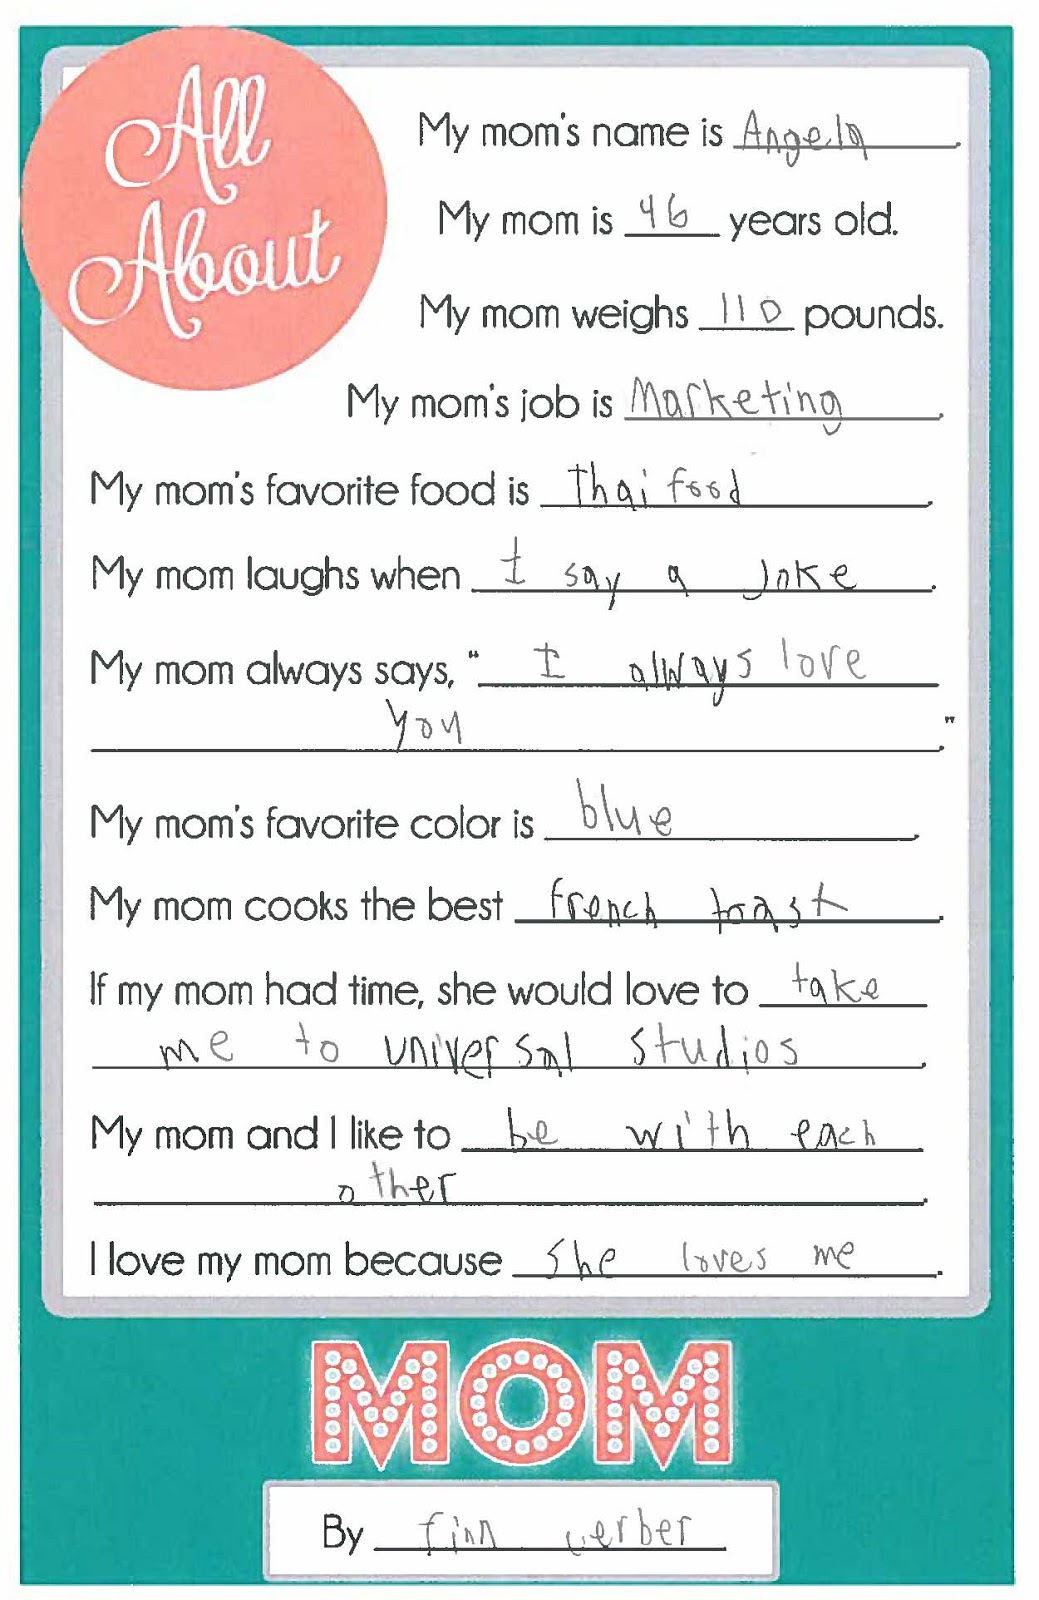 All
About
My mom's name is Angela.
My mom is 46 years old.
My mom weighs 110 pounds.
My mom's job is Marketing.
My mom's favorite food is Thai food.
My mom laughs when I say a Joke.
My mom always says, "I always love
you."
My mom's favorite color is blue.
My mom cooks the best french toast.
If my mom had time, she would love to take
me to universal studios.
My mom and I like to be with each
other.
I love my mom because she loves me.
MOM
By finn